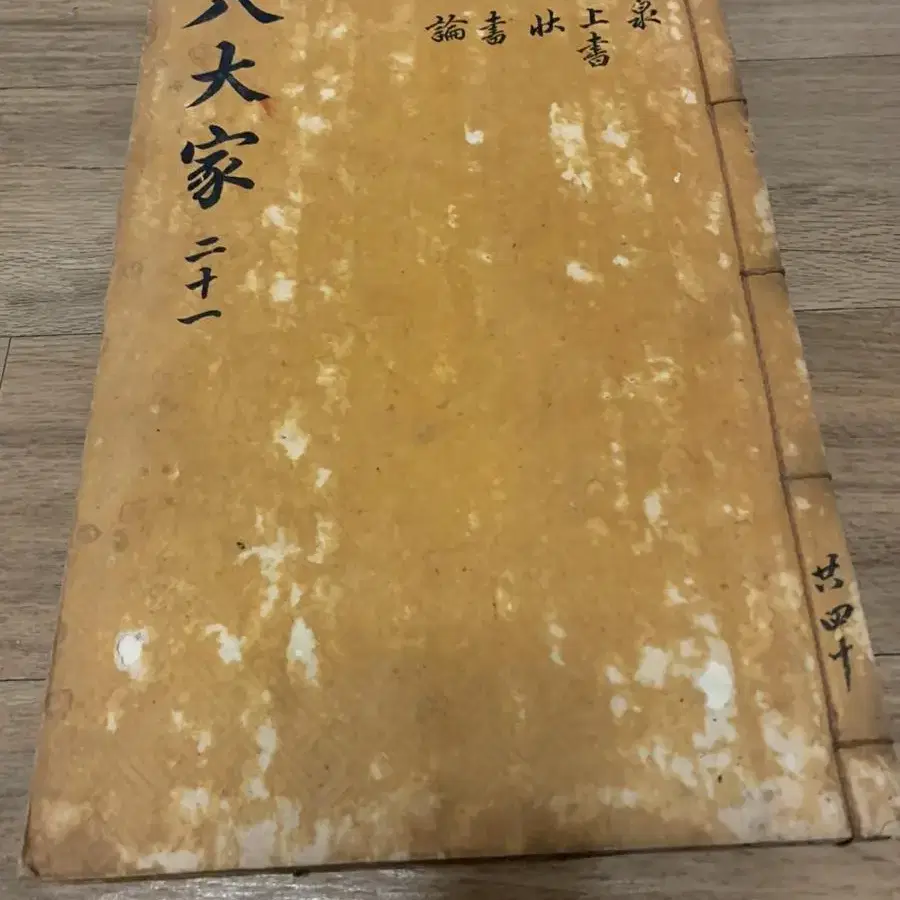 八大家 二十一
泉
上書
狀
書
論
共四十